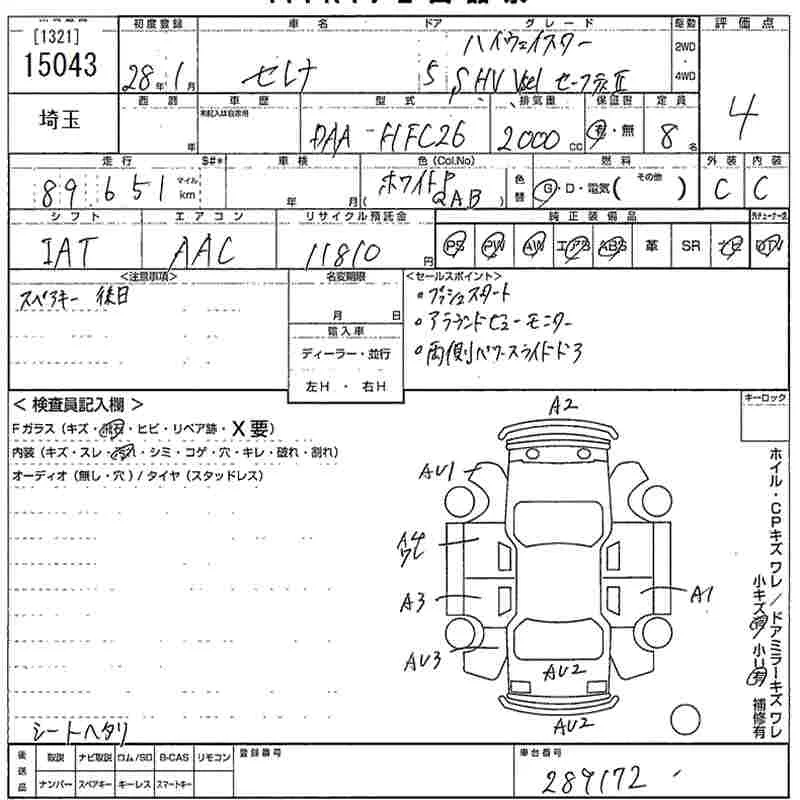 [1321]
15043
埼玉
初度登録
28年1月
車名
セレナ
ドア
5
グレード
ハイウェイスター
S HV Vsel セーフティII
駆動
2WD
4WD
評価点
4
年
車歴
未記入は自家用
型式
DAA-HFC26
排気量
2000cc
保証書
有・無
定員
8名
走行
89,651
マイル
km
$#*
車検
年 月
色(Col.No)
ホワイトP
(QAB)
色替
燃料
G・D・電気( その他 )
外装
C
内装
C
シフト
IAT
エアコン
AAC
リサイクル預託金
11810円
純正装備品
PS PW AW エアB ABS 革 SR ナビ
DTV
<注意事項>
スペアキー 後日
名変期限
月 日
輸入車
ディーラー・並行
左H・右H
<セールスポイント>
・プッシュスタート
・アラウンドビューモニター
・両側パワースライドドア
<検査員記入欄>
Fガラス(キズ・飛石・ヒビ・リペア跡・X要)
内装(キズ・スレ・汚れ・シミ・コゲ・穴・キレ・破れ・割れ)
オーディオ(無し・穴)/タイヤ(スタッドレス)
シートヘタリ
A2
AU1
A4
A3
A1
AU3
AU2
AU2
キーロック
ホイル・CPキズ ワレ/ドアミラーキズ ワレ
補修有
後送品
取説 ナビ取説 ロム/SD B-CAS リモコン
ナンバー スペアキー キーレス スマートキー
登録番号
車台番号
289172